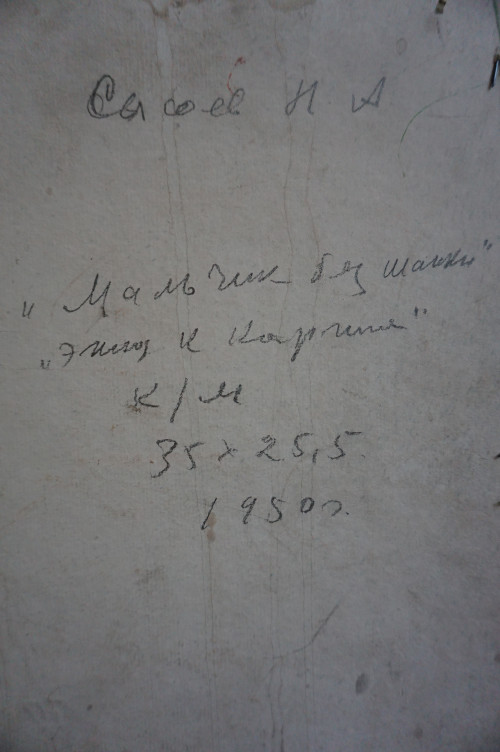 Сысоев Н А
"Мальчик без шапки"
"Этюд к картине"
К/м
35 х 25,5
1950г.